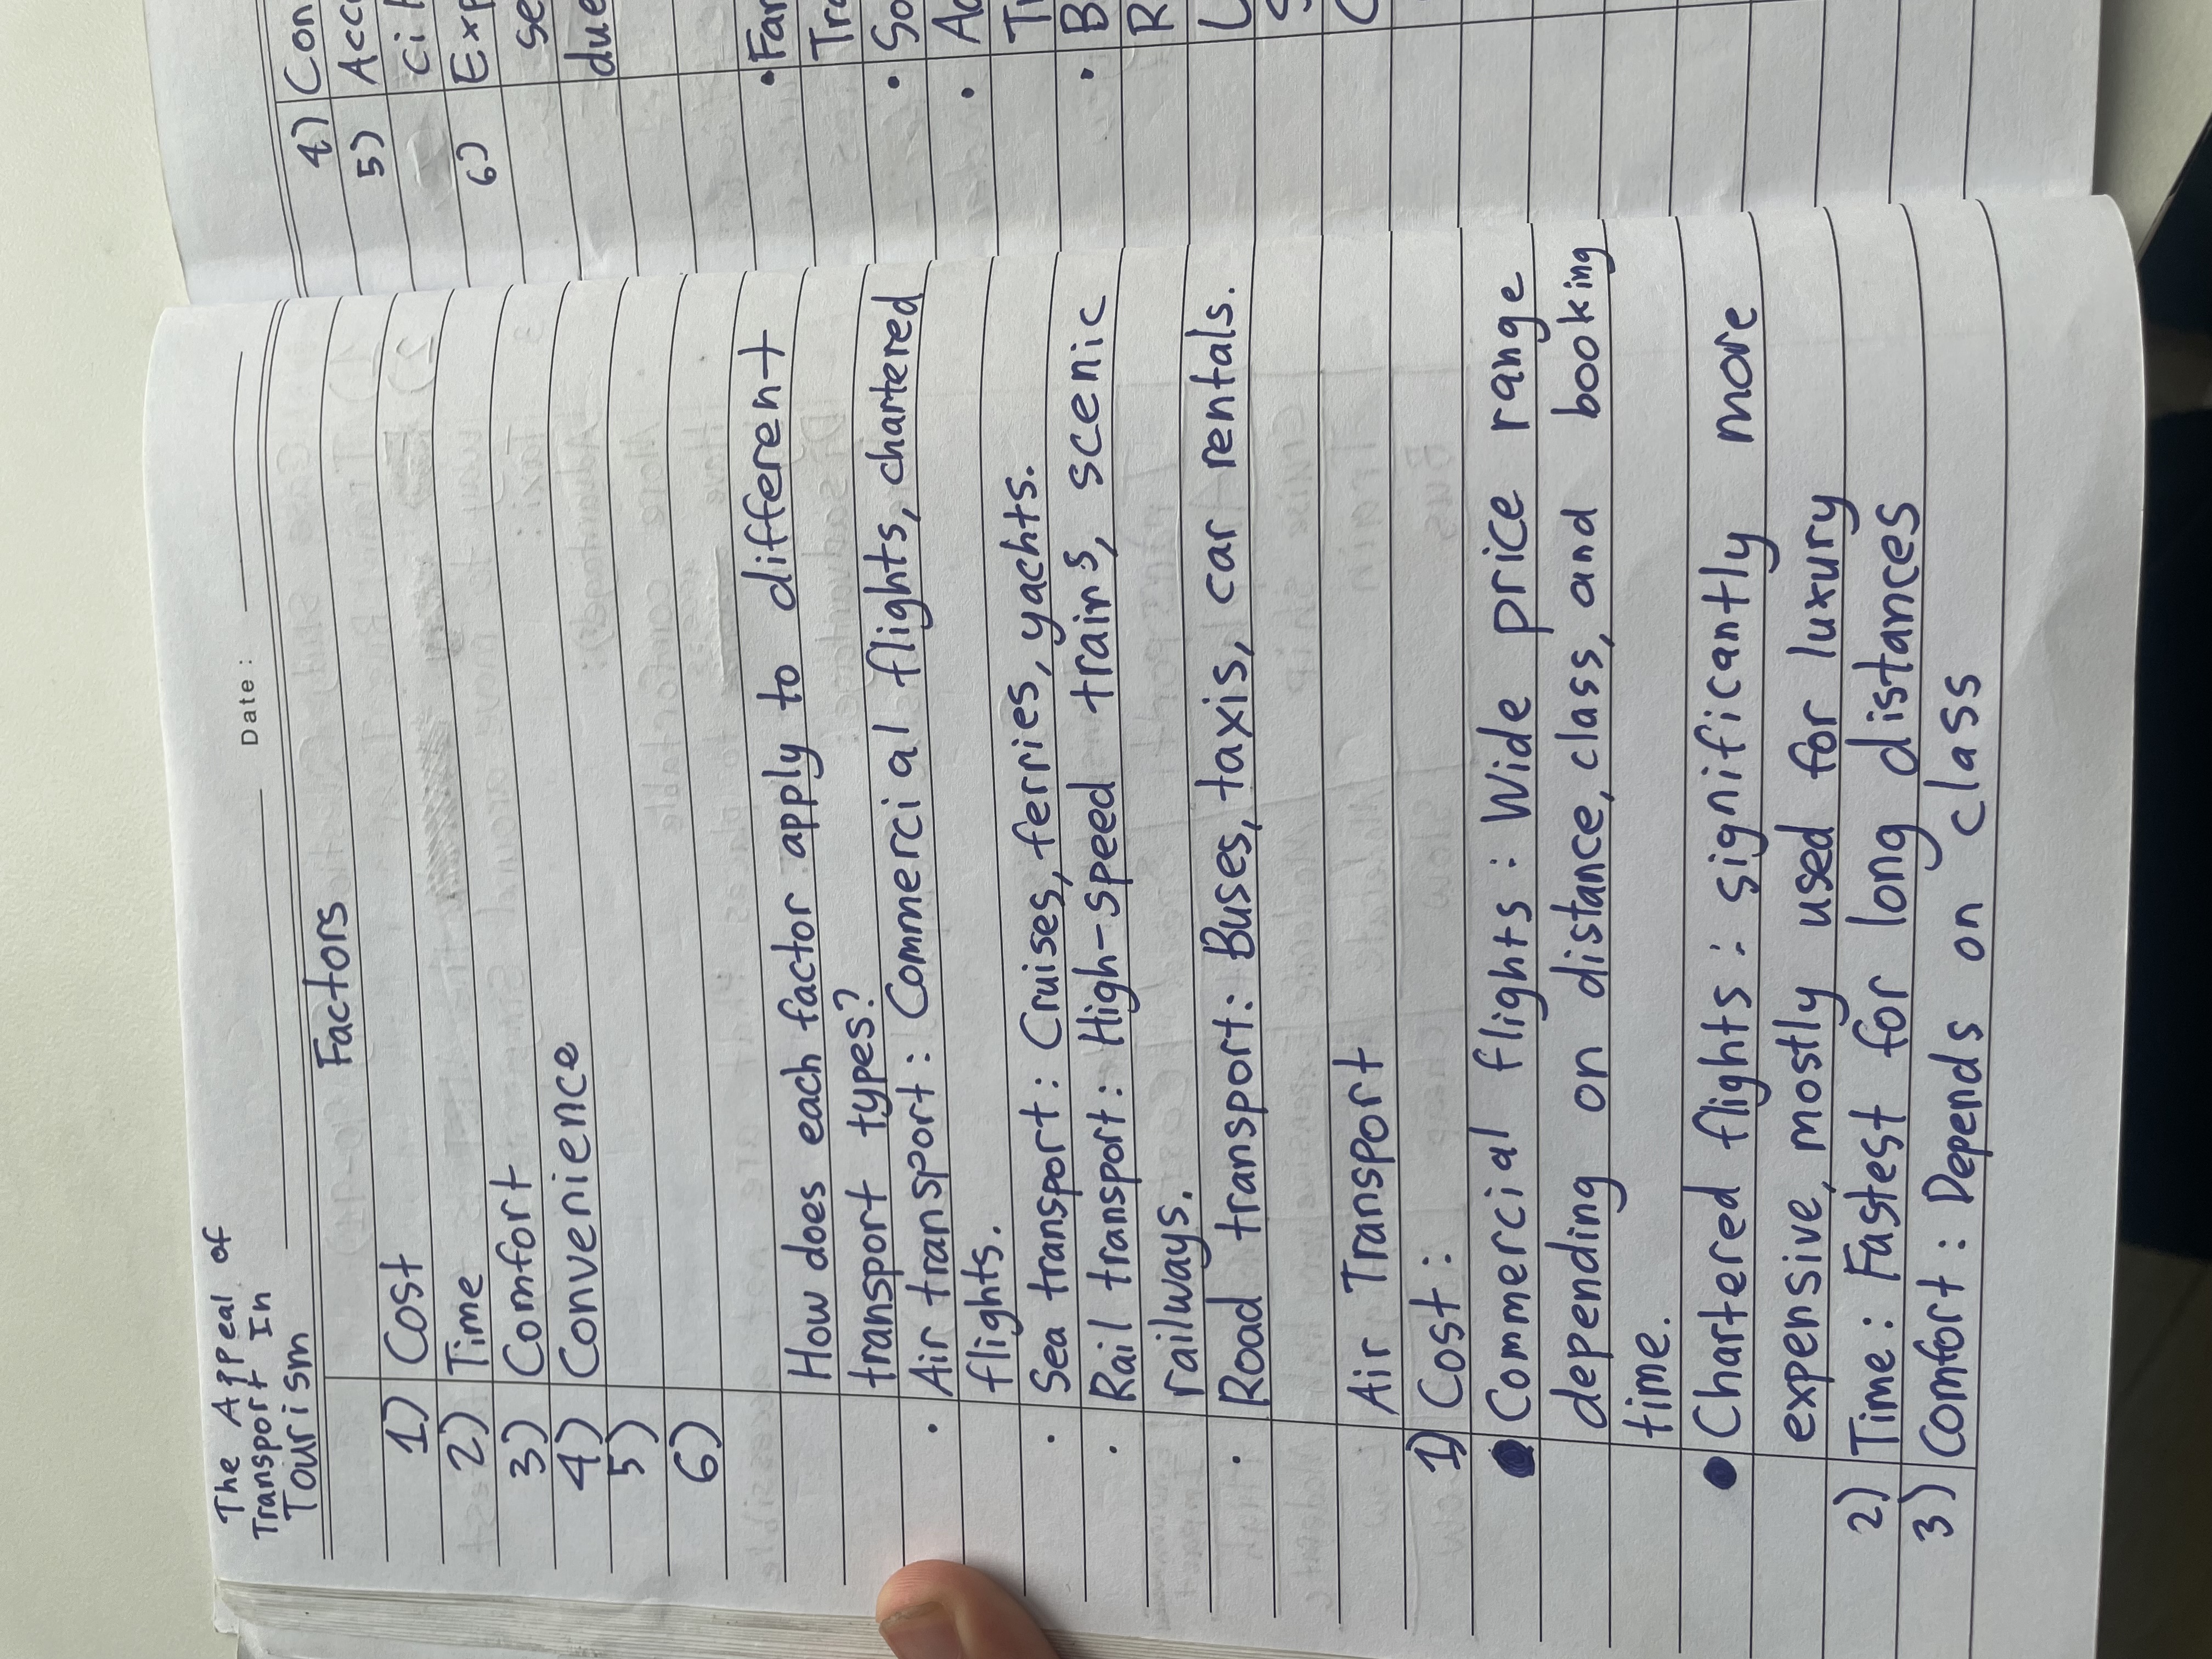 The Appeal of
Transport In
Tourism
Date:
Factors
1) Cost
2) Time
3) Comfort
4) Convenience
5)
6)
How does each factor apply to different
transport types?
· Air transport: Commercial flights, chartered
flights.
· Sea transport: Cruises, ferries, yachts.
· Rail transport: High-speed trains, scenic
railways.
· Road transport: Buses, taxis, car rentals.
Air Transport
1) Cost:
● Commercial flights: Wide price range
depending on distance, class, and booking
time.
● Chartered flights: significantly more
expensive, mostly used for luxury
2) Time: Fastest for long distances
3) Comfort: Depends on class
4) Con
5) Acc
ci
6) Exp
se
due
· Far
Tra
· So
· Ac
Tr
· B
R
L